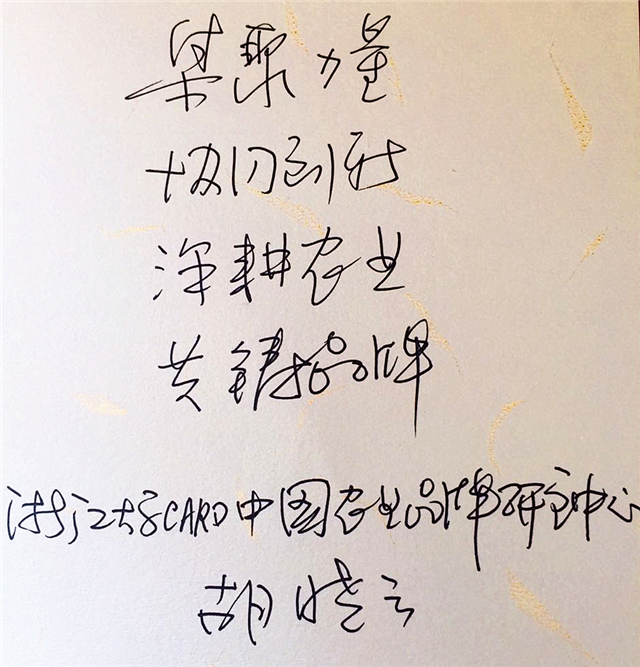 集聚力量
协同创新
深耕农业
共铸品牌
浙江大学CARD中国农业品牌研究中心
胡晓云